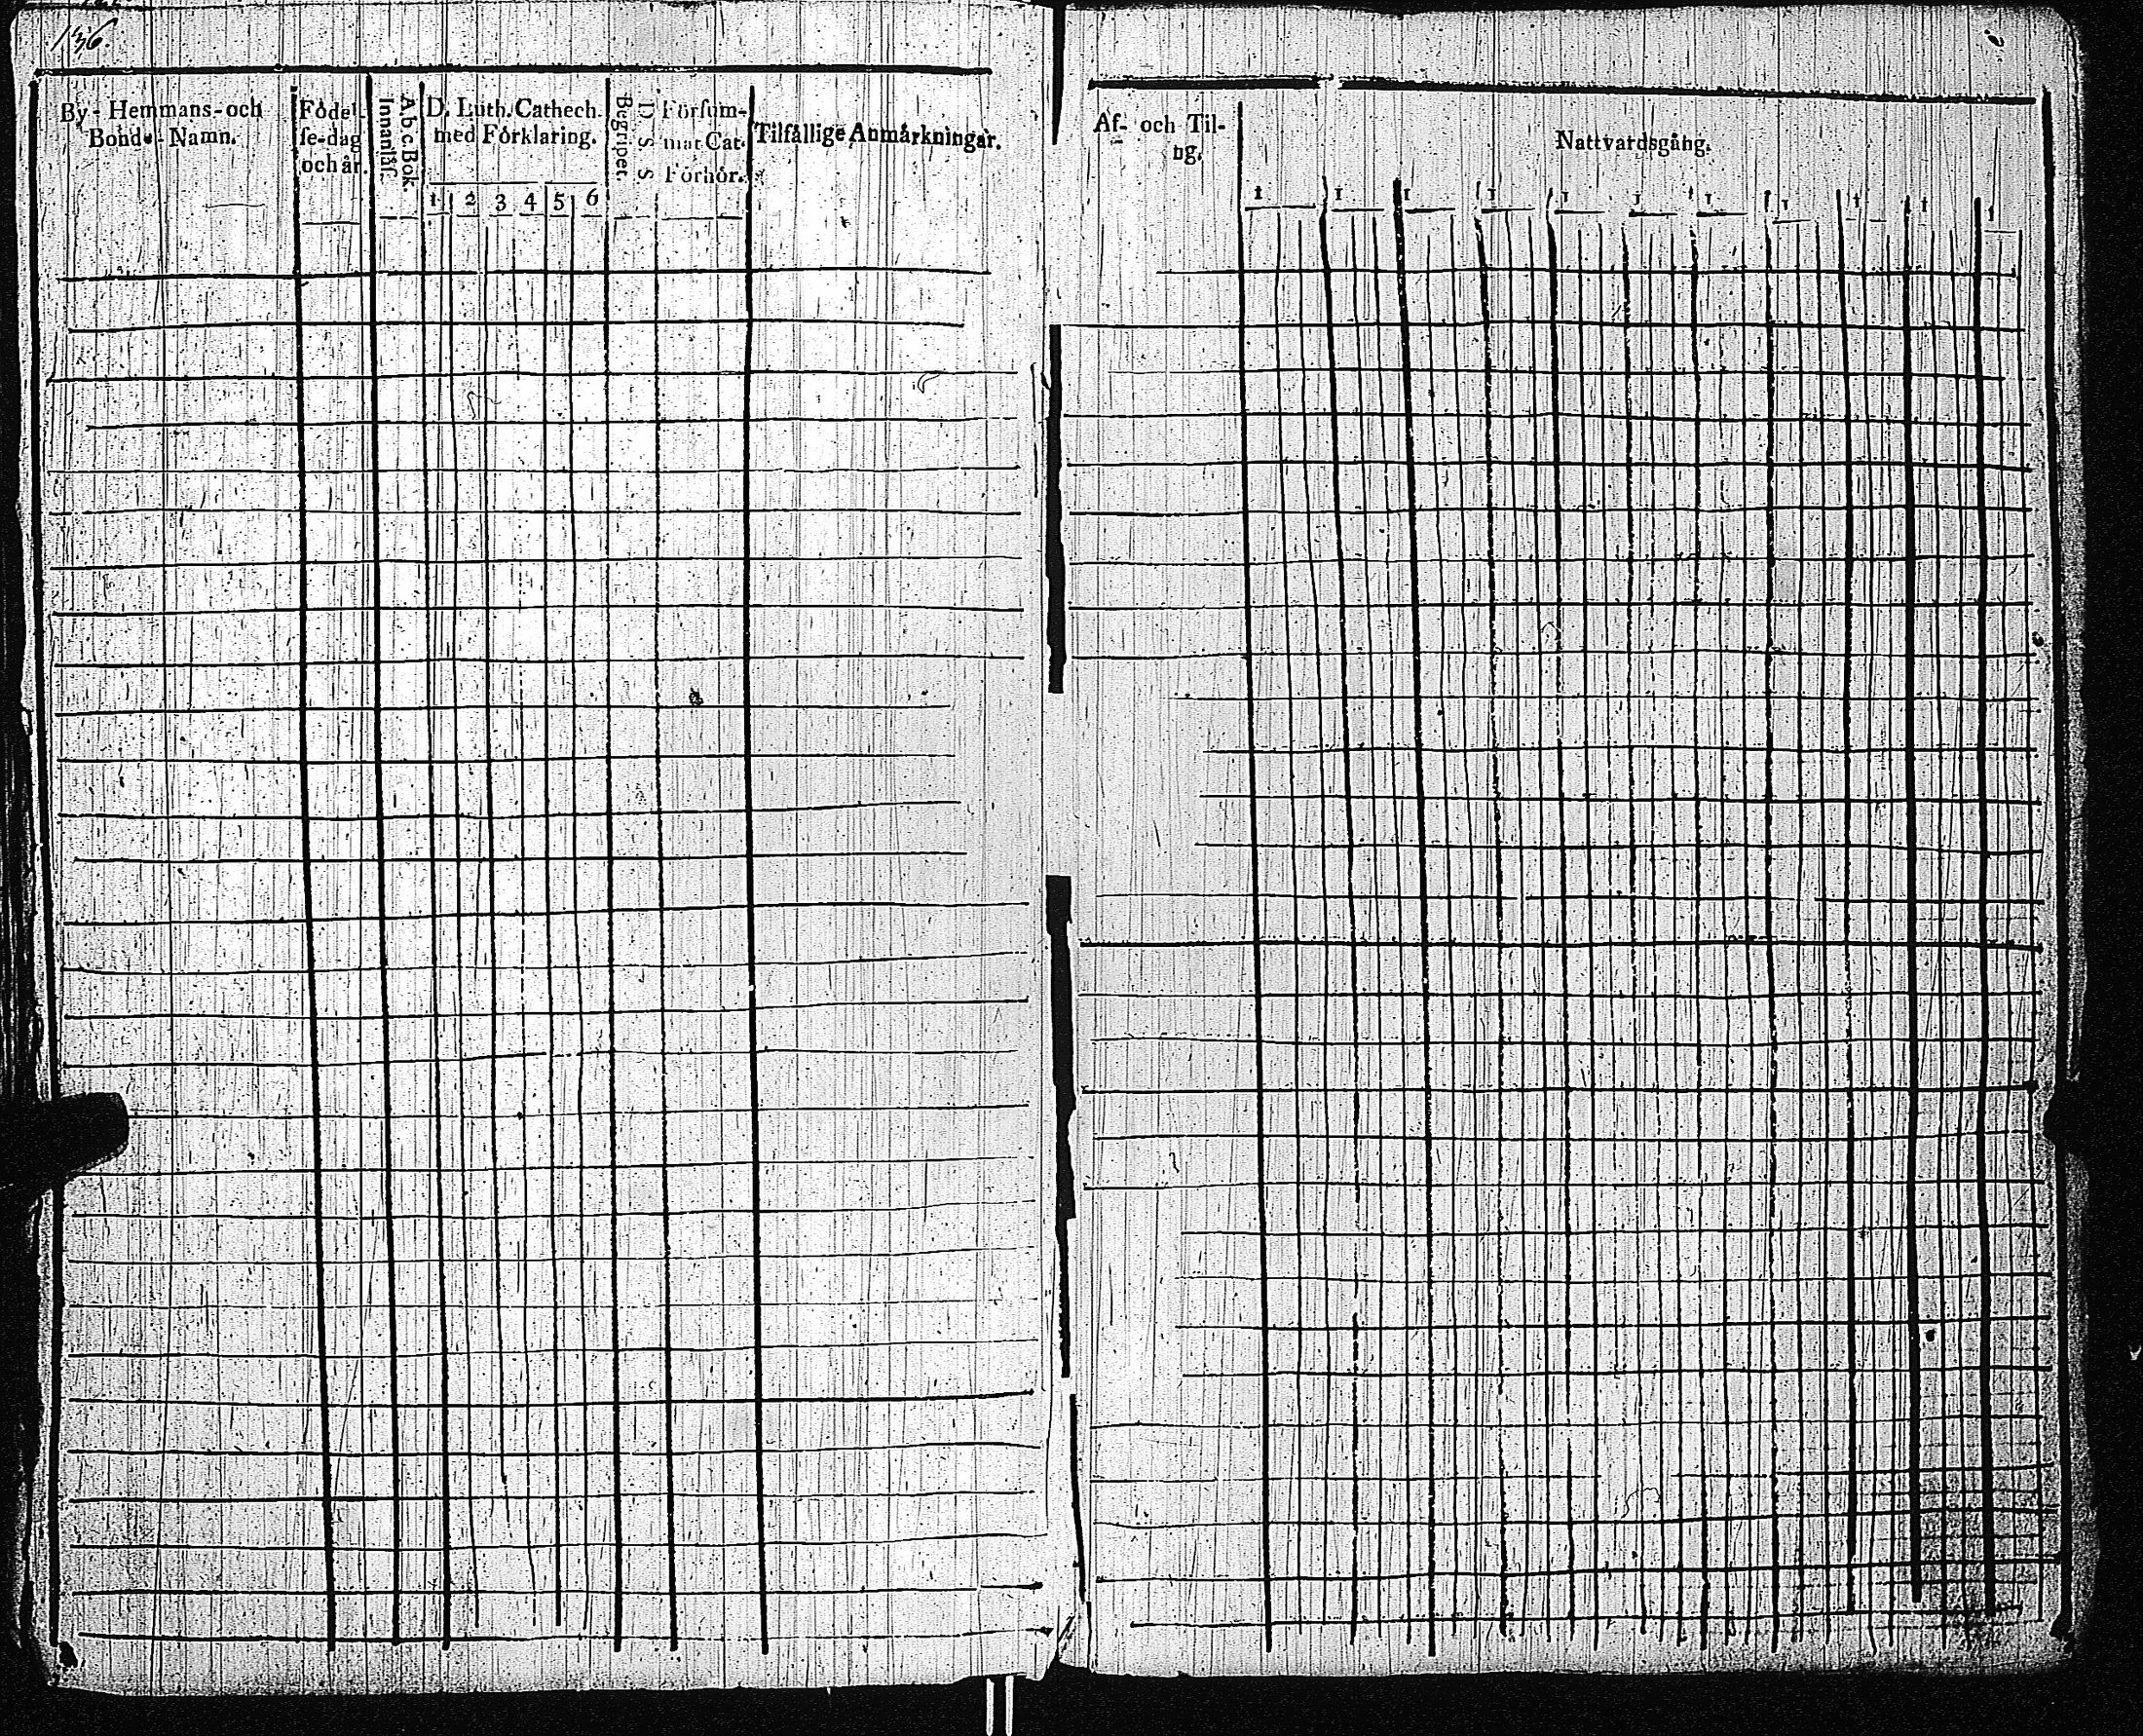 136.
By- Hemmans- och
Bonde- Namn.
Födel-
se-dag
och år.
Innanläs.
A b c Bok.
D. Luth. Cathech.
med Förklaring.
1 2 3 4 5 6
Begripet.
D. S. S
Försum-
mat Cat.
Förhör.
Tilfällige Anmärkningar.
Af- och Til-
ng.
Nattvardsgång.
1 1 1 1 1 1 1 1 1 1 1